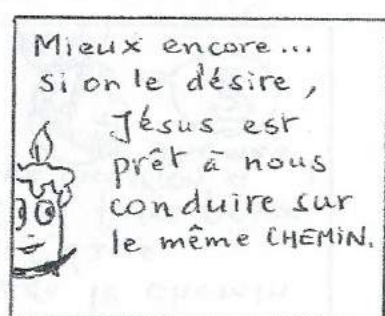 Mieux encore...
si on le désire,
Jésus est
prêt à nous
conduire sur
le même CHEMIN.